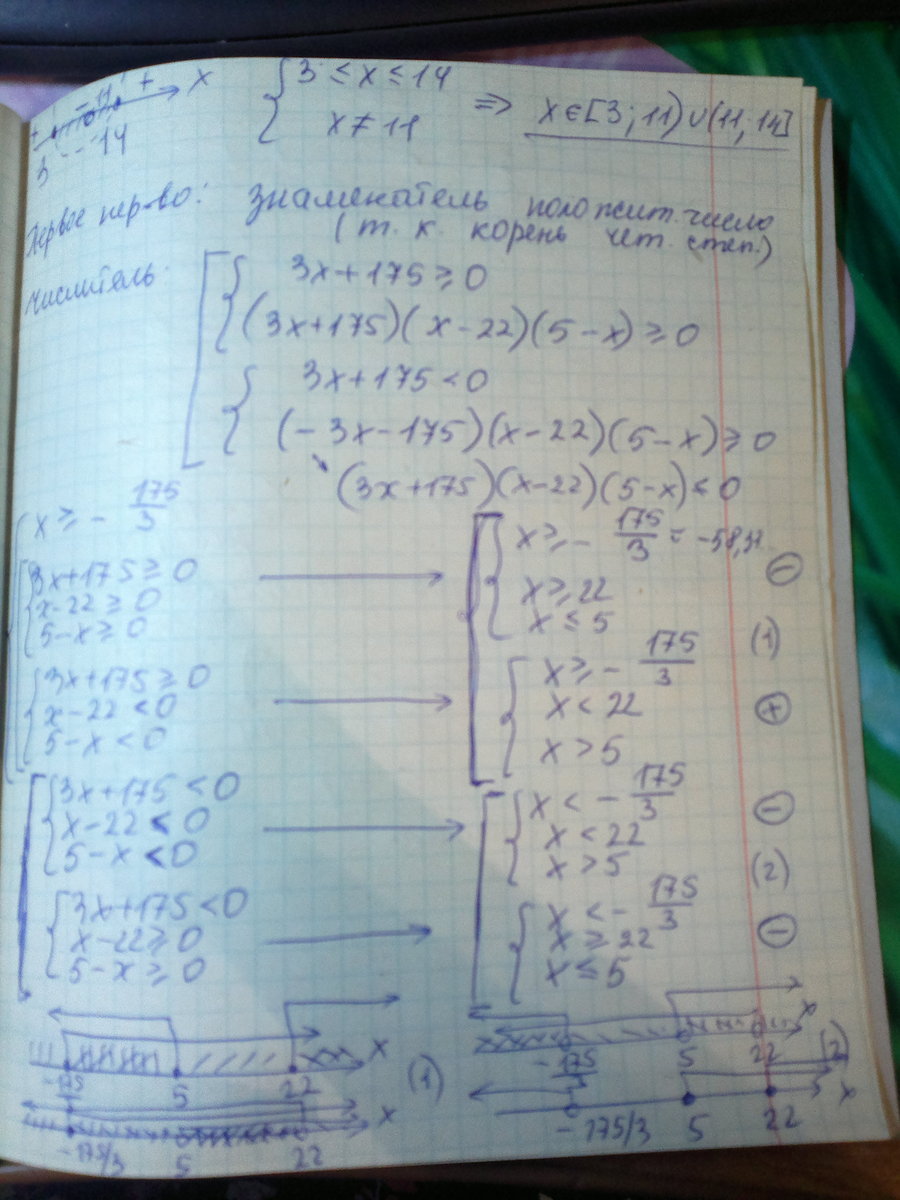 + - 11 + x
3 14
{ 3 ≤ x ≤ 14
x ≠ 11
=> x ∈ [3; 11) ∪ (11; 14]
Первое нер-во: знаменатель положит. число
(т. к. корень чет. степ.)
числитель:
3x + 175 ≥ 0
(3x + 175)(x - 22)(5 - x) ≥ 0
3x + 175 < 0
(-3x - 175)(x - 22)(5 - x) ≥ 0
(3x + 175)(x - 22)(5 - x) < 0
x ≥ - 175/3
3x + 175 ≥ 0
x - 22 ≥ 0
5 - x ≥ 0
→
x ≥ - 175/3 =
x ≥ 22
x ≤ 5
(-)
(1)
3x + 175 ≥ 0
x - 22 < 0
5 - x < 0
→
x ≥ - 175/3
x < 22
x > 5
(+)
3x + 175 < 0
x - 22 < 0
5 - x < 0
→
x < - 175/3
x < 22
x > 5
(-)
(2)
3x + 175 < 0
x - 22 ≥ 0
5 - x ≥ 0
→
x < - 175/3
x ≥ 22
x ≤ 5
(-)
-175/3 5 22 x
(1)
-175/3 5 22 x
-175/3 5 22 x
(2)
-175/3 5 22 x